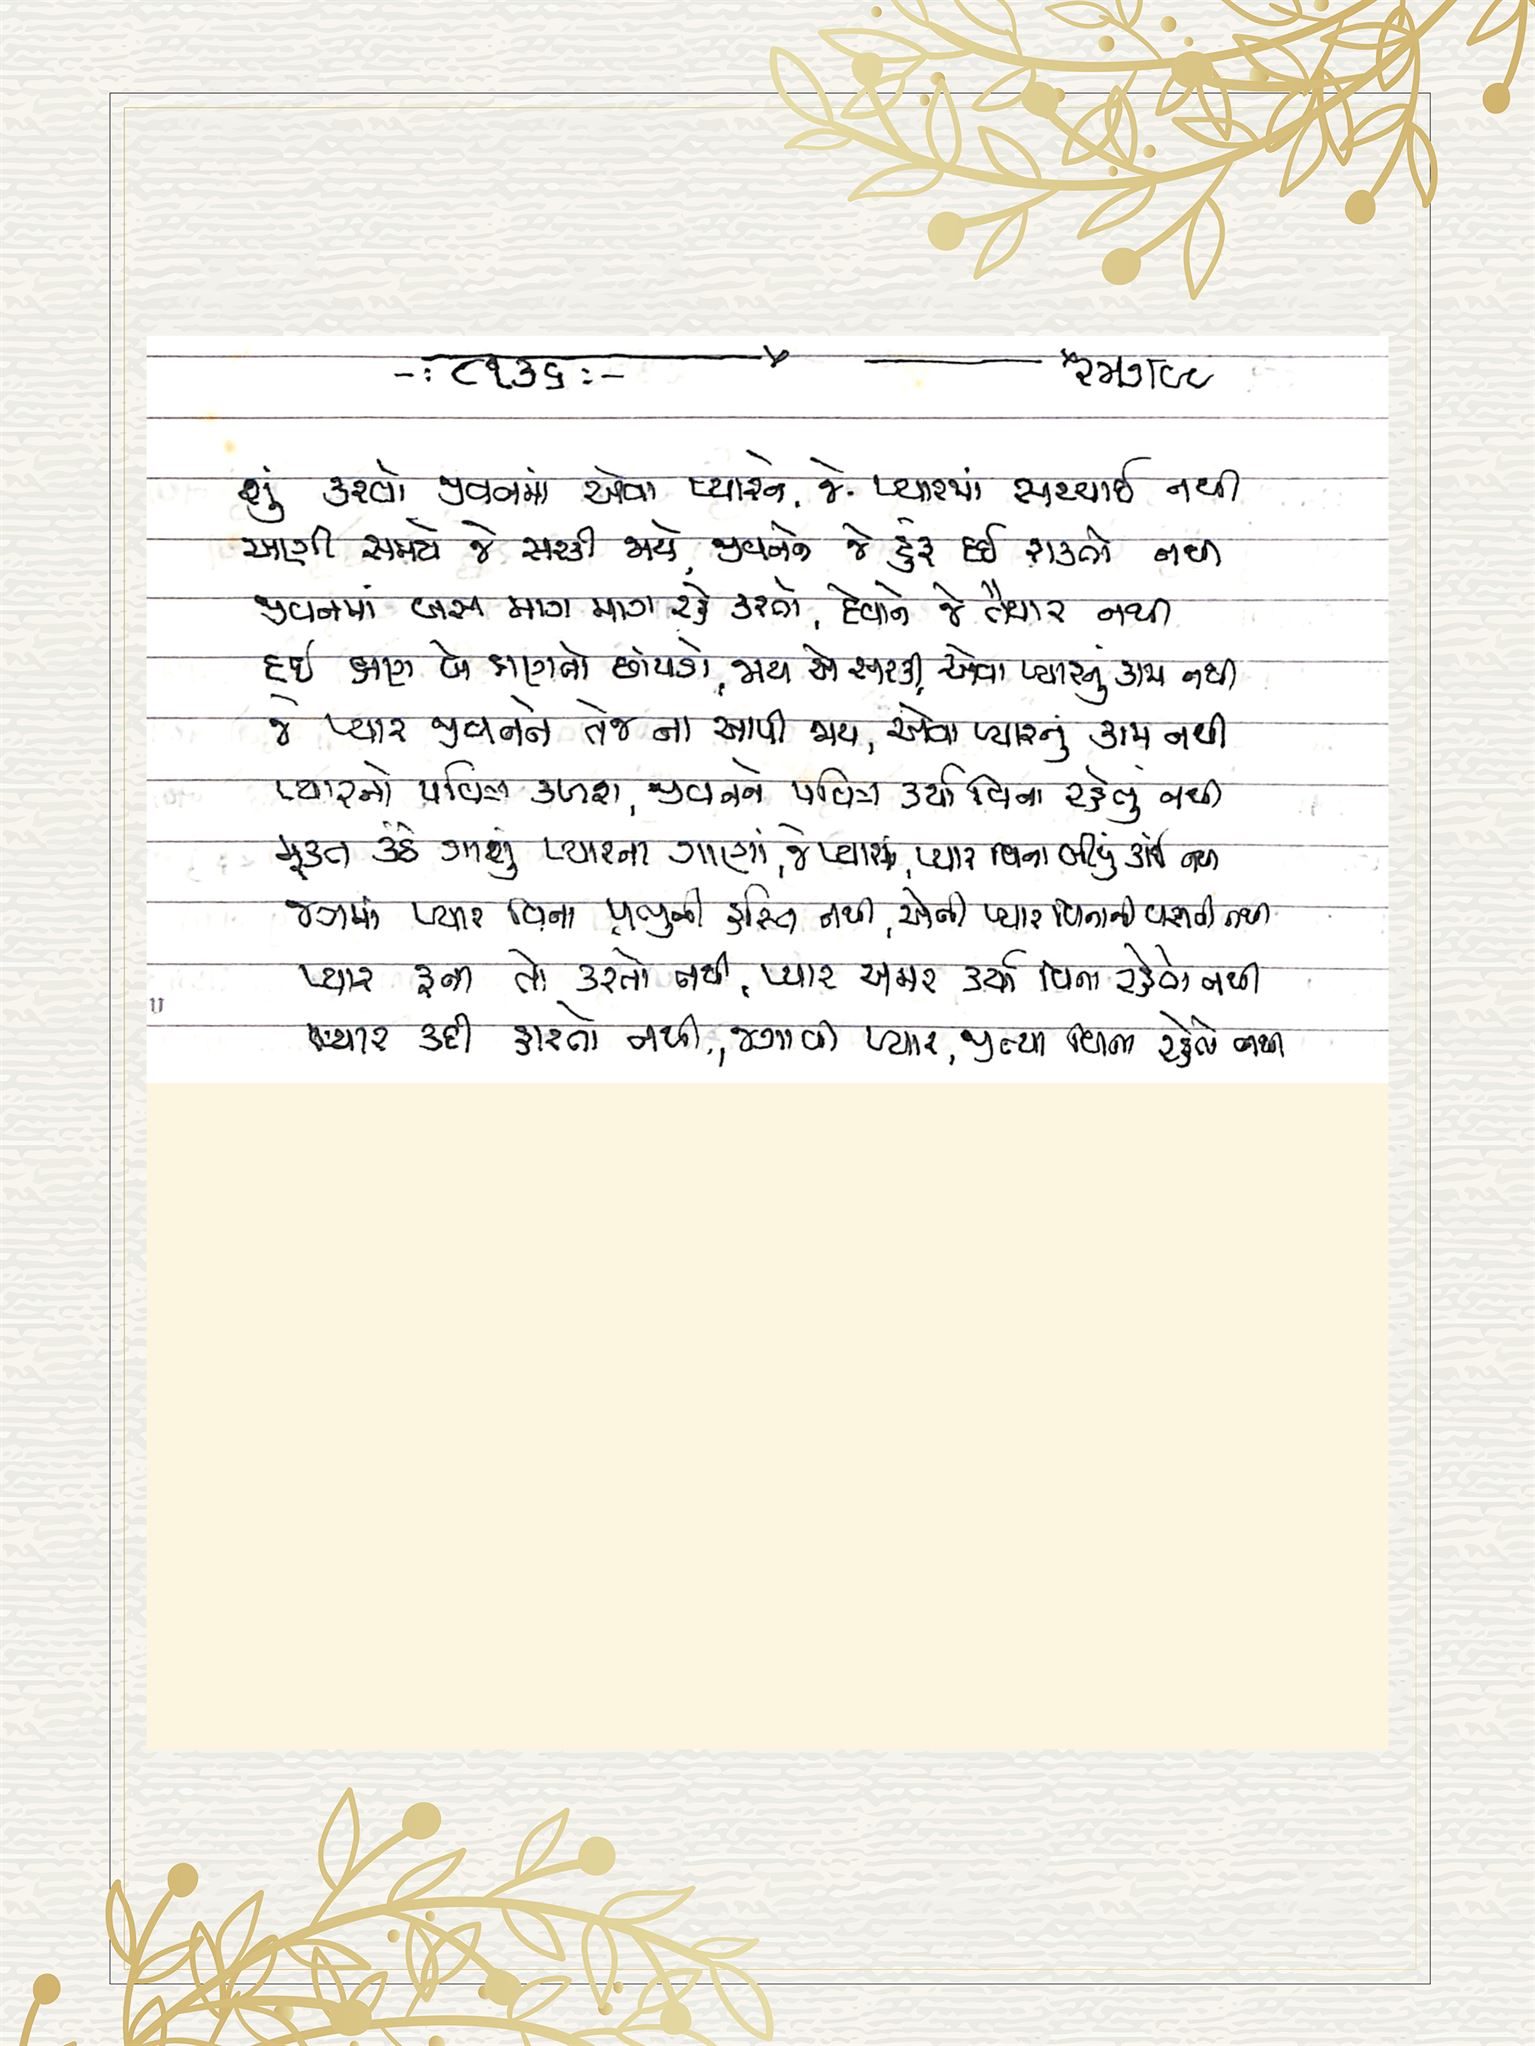 -: ૮૧૩૬ :-
શું કરવો જીવનમાં એવા પ્યારને, જે પ્યારમાં સચ્ચાઈ નથી
આણી સમયે જે સરકી જાયે, જીવનને જે હુંફ દઈ શકતો નથી
જીવનમાં બસ માગ માગ રહે કરતો, દેવાને જે તૈયાર નથી
દઈ ક્ષણ બે ક્ષણનો છાંયડો, જાય એ સરકી, એવા પ્યારનું કામ નથી
જે પ્યાર જીવનને તેજ ના આપી જાય, એવા પ્યારનું કામ નથી
પ્યારનો પવિત્ર કળશ, જીવનને પવિત્ર કર્યા વિના રહેવું નથી
મૂક્ત કંઠે ગાશું પ્યારના ગાણાં, જે પ્યારમાં, પ્યાર વિના બીજું કાંઈ નથી
જગમાં પ્યાર વિના પ્રભુની હસ્તિ નથી, એની પ્યાર વિનાની વસ્તી નથી
પ્યાર ફના તો કરતો નથી, પ્યાર અમર કર્યા વિના રહેતો નથી
પ્યાર કદી હારતો નથી, જગાવી પ્યાર, જીત્યા વિના રહેવું નથી